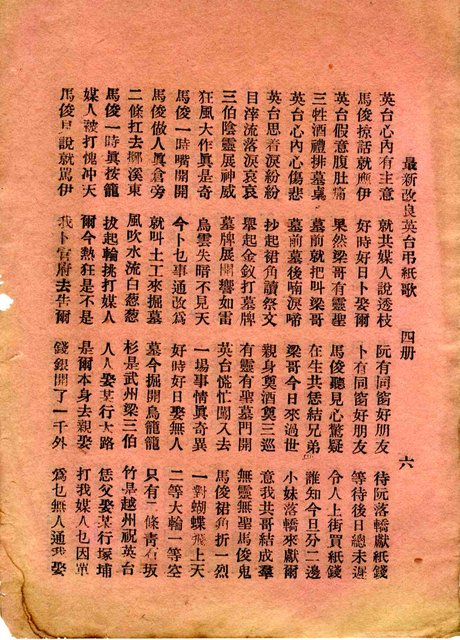 最新改良英台弔紙歌 四册 六
英台心內有主意 就共媒人說透枝 阮有同窗好朋友 待阮落轎獻紙錢
馬俊掠話就應伊 好時好日卜娶爾 卜有同窗好朋友 等待後日總未遲
英台假意腹肚痛 果然梁哥有靈聖 馬俊聽見心驚疑 令人上街買紙錢
三牲酒禮排墓桌 墓前就把叫梁哥 在生共恁結兄弟 誰知今旦分二邊
英台心內心傷悲 墓前墓後喃淚啼 梁哥今日來過世 小妹落轎來獻爾
英台思着淚紛紛 抄起裙角讀祭文 親身奠酒奠三巡 意我共哥結成羣
目滓流落淚哀哀 舉起金釵打墓牌 有靈有聖墓門開 無靈無聖馬俊鬼
三伯陰靈展神威 墓牌展開響如雷 英台慌忙闖入去 馬俊裙角折一烈
狂風大作眞是奇 烏雲失暗不見天 一塲事情眞奇異 一對蝴蝶飛上天
馬俊一時嘴開開 今卜乜事通改爲 好時好日娶無人 二等大輪一等空
馬俊做人眞倉旁 就叫土工來掘墓 墓今掘開烏龍龍 只有二條靑石坂
二條扛去擲溪東 風吹水流白葱葱 杉是武州梁三伯 竹是越州祝英台
馬俊一時眞按籠 拔起輪挑打媒人 人人娶某行大路 恁父娶某行塚埔
媒人被打愧冲天 爾今熱狂是不是 是爾本身去親娶 打我媒人乜因單
馬俊見說就罵伊 我卜官府去告爾 錢銀開了一千外 爲乜無人通我娶